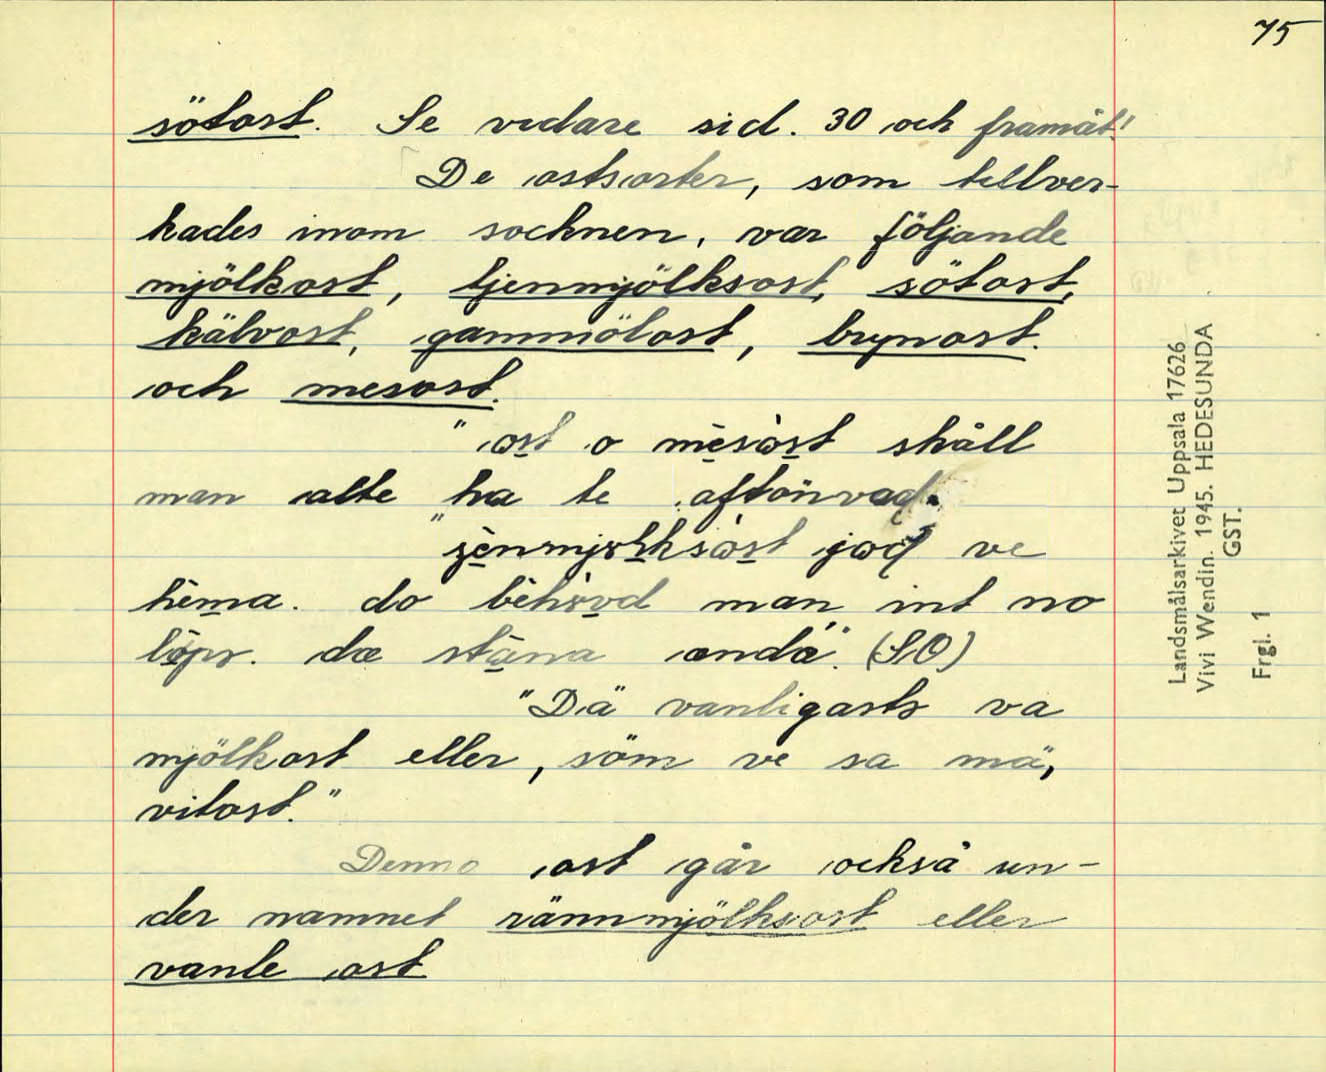 75
sötost. Se vidare sid. 30 och framåt!
De ostsorter, som tillver-
kades inom socknen, var följande
mjölkost, tjenmjölksost, sötost,
kälvost, gammölost, brynost.
och mesost.
"ost o mèsòst skåll
man alte ha te aftönvad.
"jènmjölksòst jod ve
hèma. do bèhövd man int no
löps. dæ stäna ændå". (SO)
"Dä vanligasts va
mjölkost eller, söm ve sa mä,
vitost."
Denna ost går också un-
der namnet rännmjölksost eller
vanle ost
Landsmålsarkivet Uppsala 17626
Vivi Wendin. 1945. HEDESUNDA
GST.
Frgl. 1